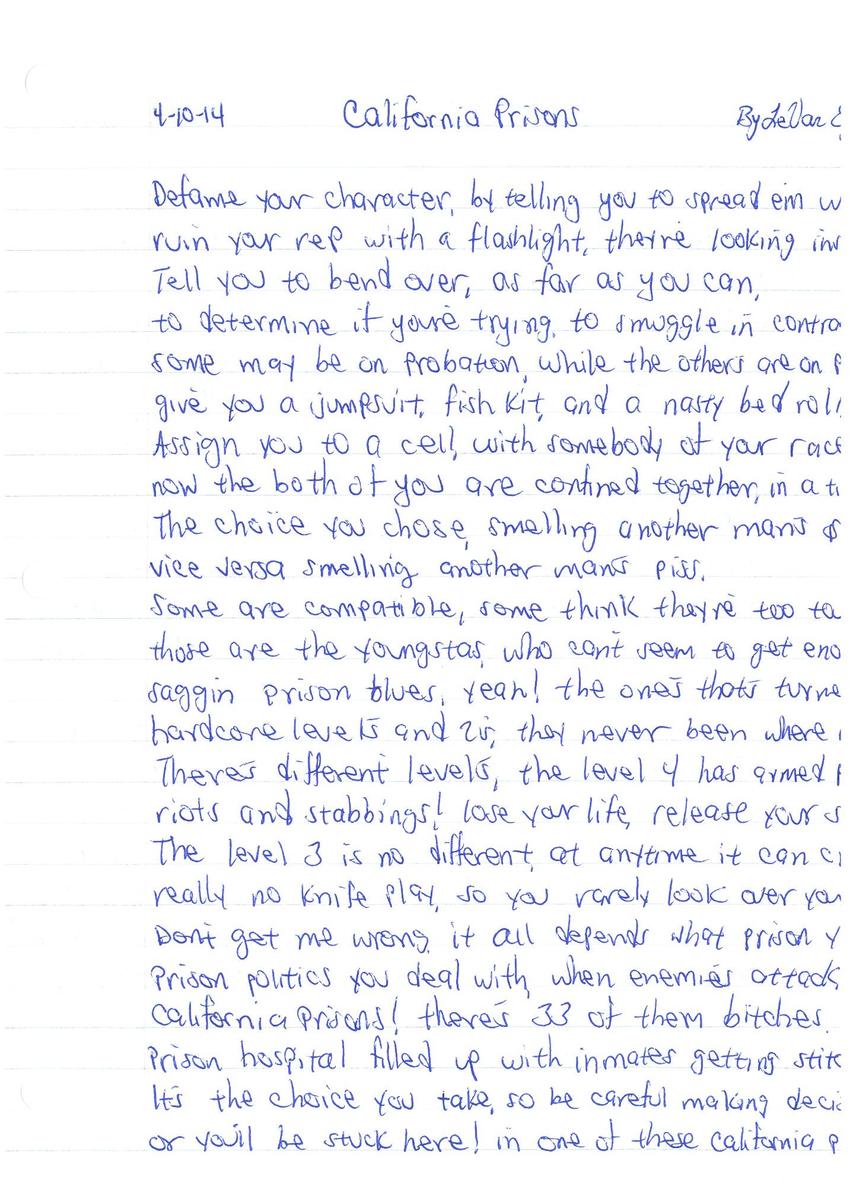 4-10-14 California Prisons By LeVar
Defame your character, by telling you to spread em
ruin your rep with a flashlight, they're looking
Tell you to bend over, as far as you can,
to determine if you're trying, to smuggle in contra
some may be on probation, while the others are on
give you a jumpsuit, fish kit, and a nasty bed roll
Assign you to a cell, with somebody of your race
now the both of you are confined together, in a
The choice you chose, smelling another man's
vice versa smelling another man's piss.
Some are compatible, some think they're too
those are the youngstas, who can't seem to get eno
saggin prison blues, yeah! the one's that's turne
hardcore level 1s and 2s, they never been where
There's different level's, the level 4 has armed
riots and stabbings! lose your life, release your
The level 3 is no different, at anytime it can
really no knife play, so you rarely look over you
Don't get me wrong, it all depends what prison
Prison politics you deal with, when enemies attack
California Prisons! there's 33 of them bitches.
Prison hospital filled up with inmates getting stitc
It's the choice you take, so be careful making deci
or you'll be stuck here! in one of these california p